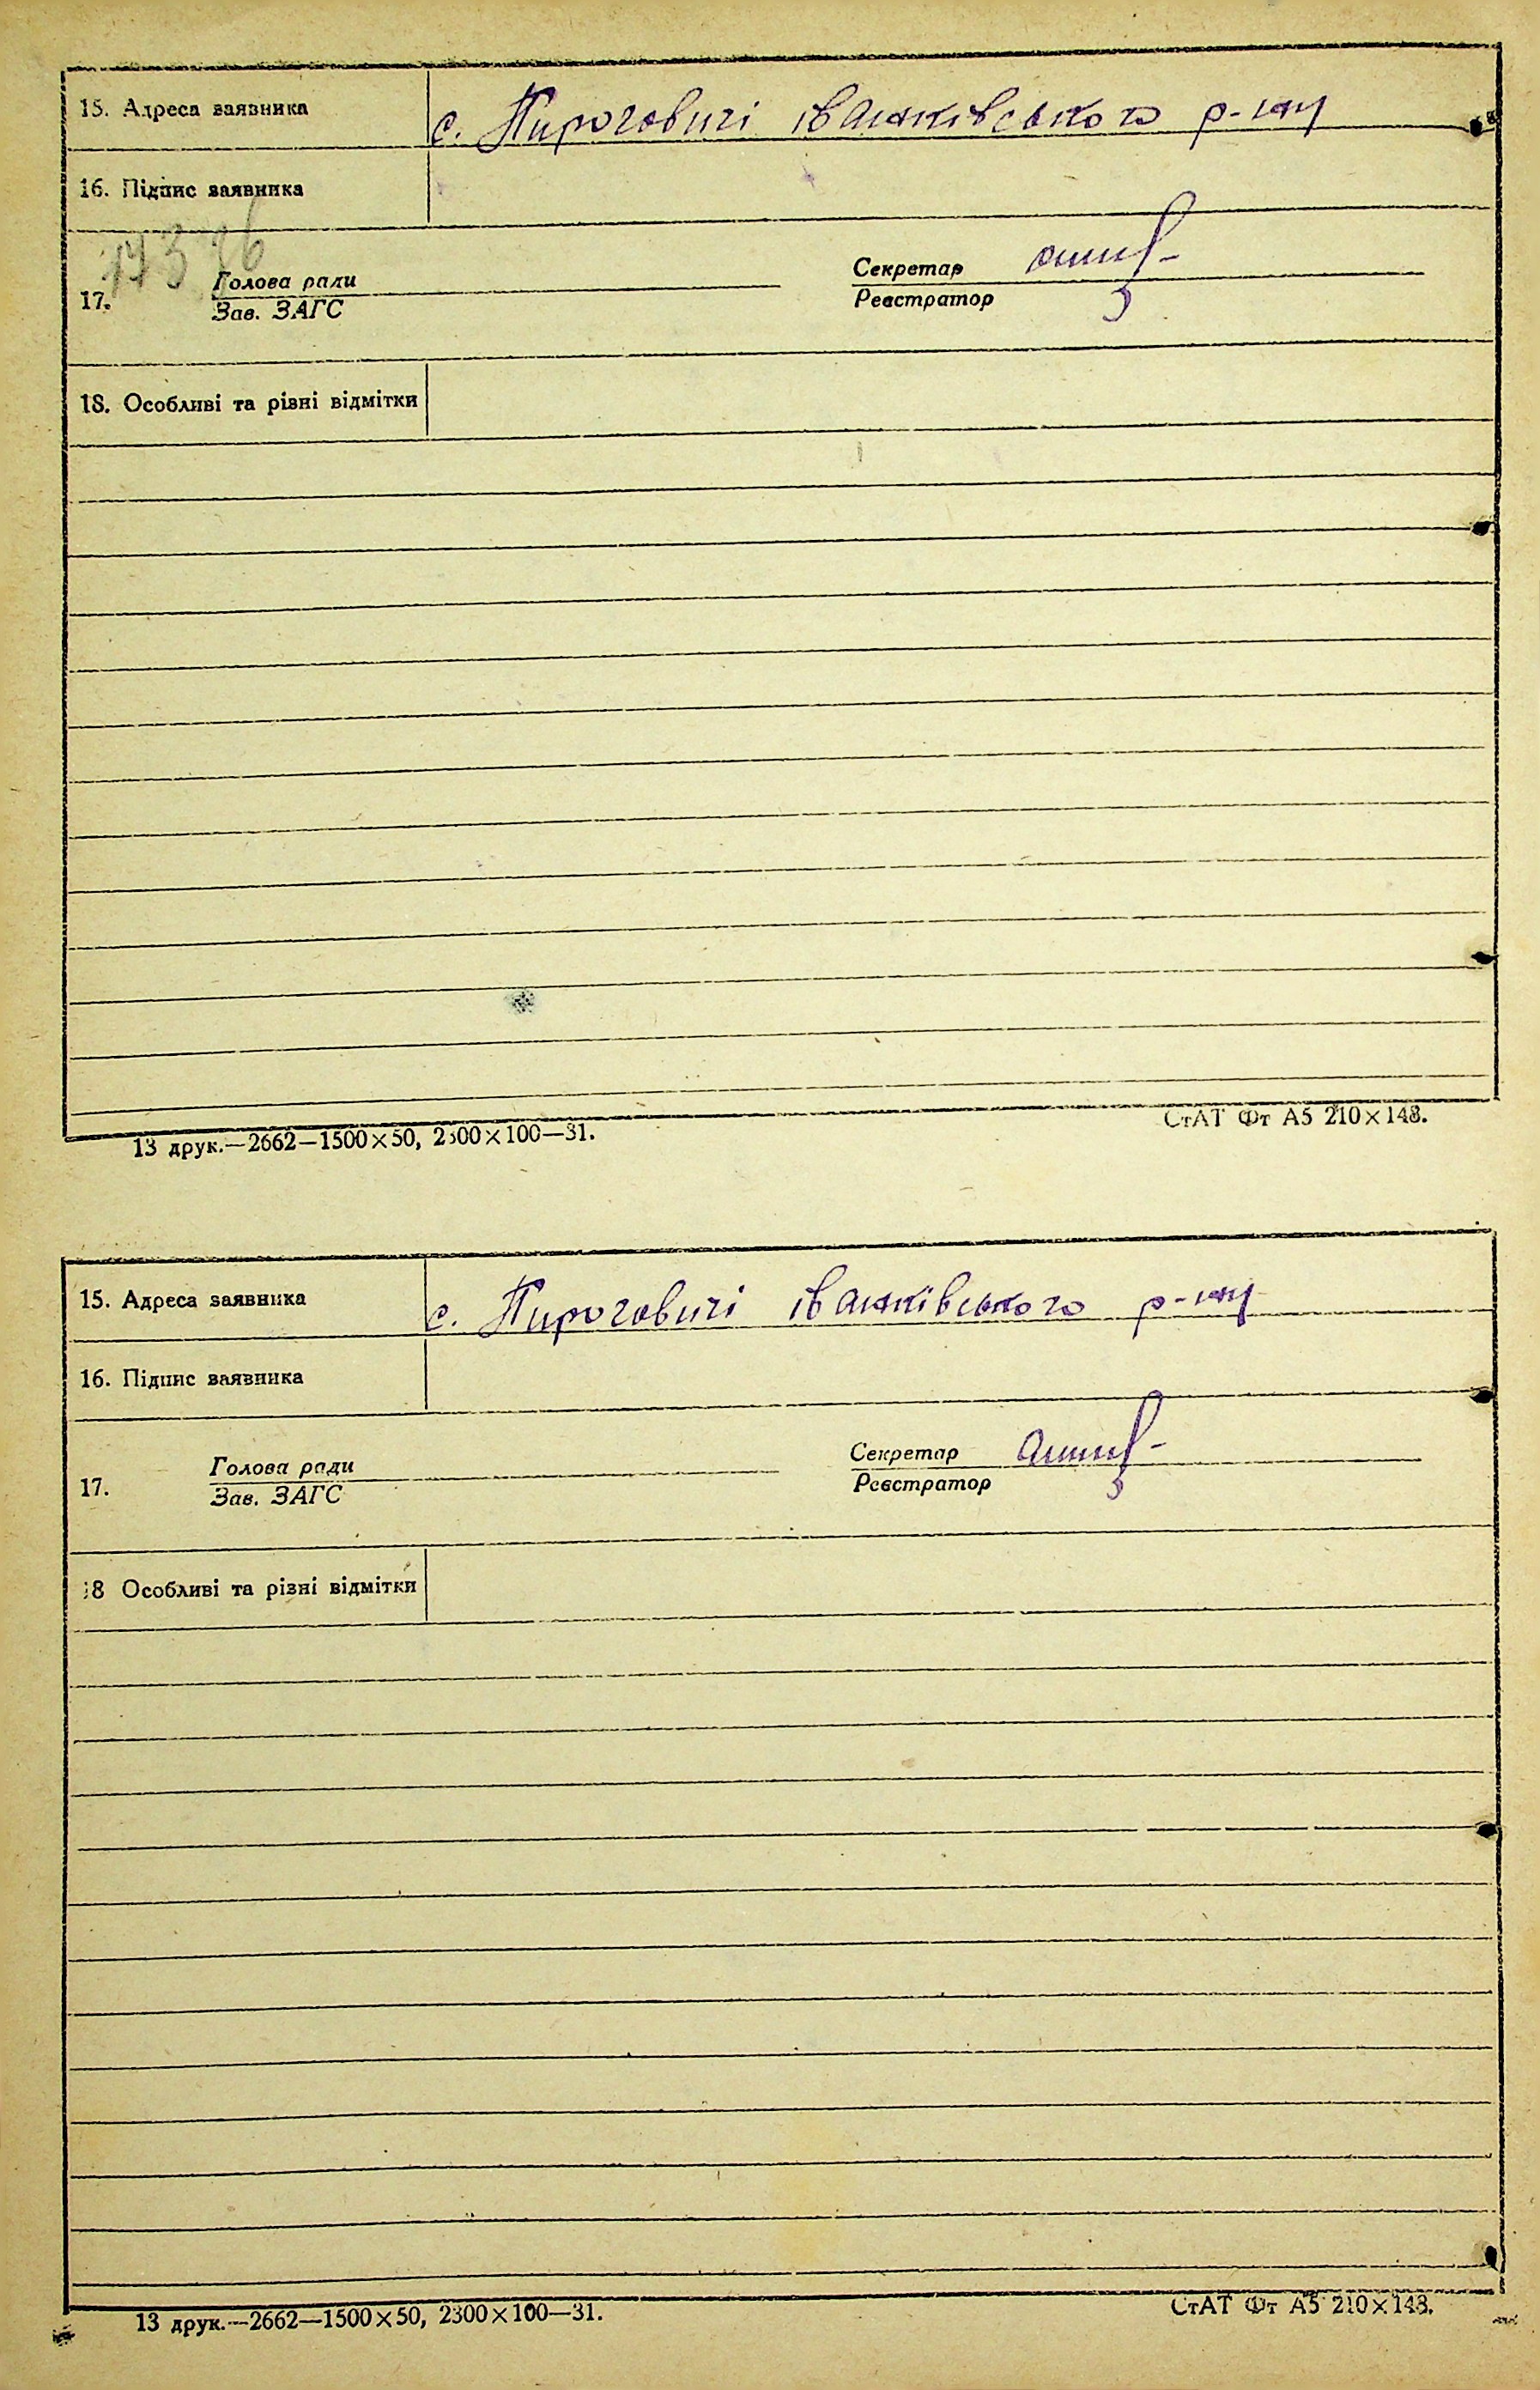 15. Адреса заявника с. Пироговичі іванківського р-ну
16. Підпис заявника
Секретар
17. Голова ради
Зав. ЗАГС
Реєстратор
18. Особливі та різні відмітки
13 друк.—2662—1500×50, 2300×100—31. СтАТ Фт А5 210×148.
15. Адреса заявника с. Пироговичі іванківського р-ну
16. Підпис заявника
Секретар
17. Голова ради
Зав. ЗАГС
Реєстратор
18 Особливі та різні відмітки
13 друк.—2662—1500×50, 2300×100—31. СтАТ Фт А5 210×148.